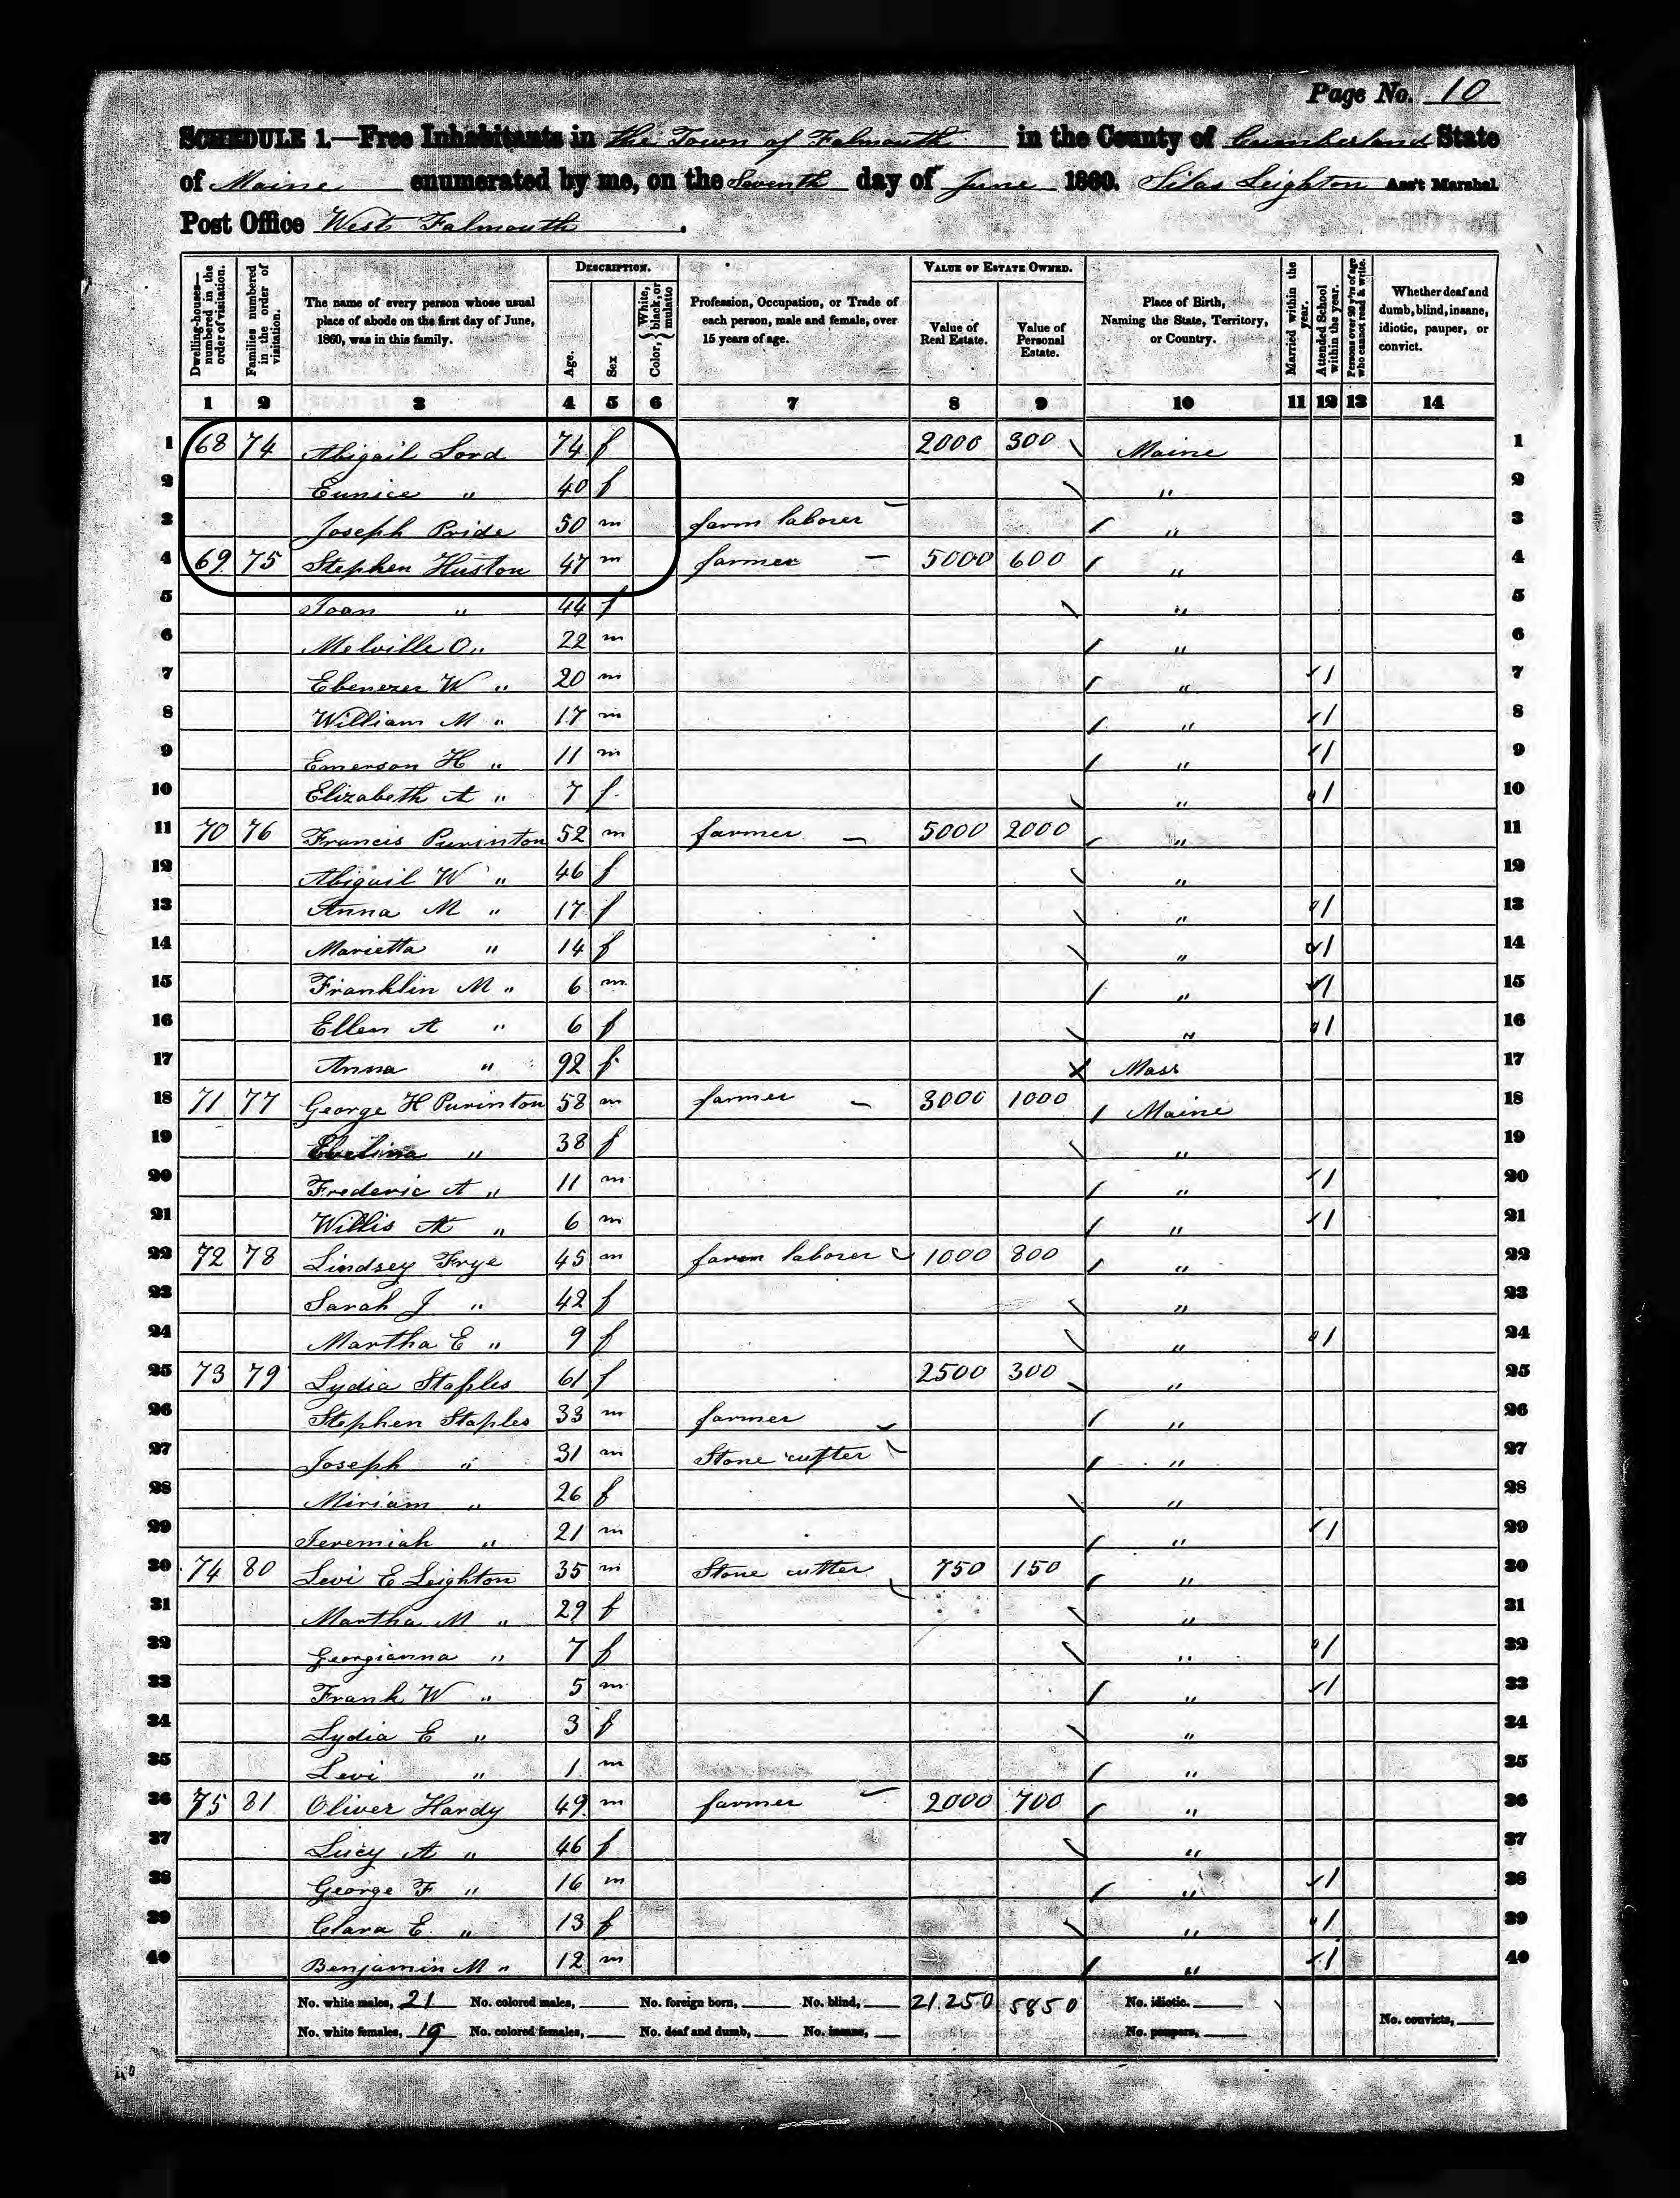 Page No. 10
SCHEDULE 1.—Free Inhabitants in the Town of Falmouth in the County of Cumberland State
of Maine enumerated by me, on the Seventh day of June 1860. Silas Leighton Ass't Marshal
Post Office West Falmouth.
DESCRIPTION. VALUE OF ESTATE OWNED.
Dwelling-houses—numbered in the order of visitation. Families numbered in the order of visitation. The name of every person whose usual place of abode on the first day of June, 1860, was in this family. Age. Sex Color, {White, black, or mulatto Profession, Occupation, or Trade of each person, male and female, over 15 years of age. Value of Real Estate. Value of Personal Estate. Place of Birth, Naming the State, Territory, or Country. Married within the year. Attended School within the year. Persons over 20 y'rs of age who cannot read & write. Whether deaf and dumb, blind, insane, idiotic, pauper, or convict.
1 2 3 4 5 6 7 8 9 10 11 12 13 14
1 68 74 Abigail Lord 74 f 2000 300 Maine 1
2 Eunice " 40 f " 2
3 Joseph Pride 50 m farm laborer " 3
4 69 75 Stephen Huston 47 m farmer 5000 600 " 4
5 Joan " 44 f " 5
6 Melville O " 22 m " 6
7 Ebenezer W " 20 m " 1 7
8 William M " 17 m " 1 8
9 Emerson H " 11 m " 1 9
10 Elizabeth A " 7 f " 1 10
11 70 76 Francis Purinton 52 m farmer 5000 2000 " 11
12 Abigail W " 46 f " 12
13 Anna M " 17 f " 1 13
14 Marietta " 14 f " 1 14
15 Franklin M " 6 m " 1 15
16 Ellen A " 6 f " 1 16
17 Anna " 92 f Mass 17
18 71 77 George H Purinton 58 m farmer 3000 1000 Maine 18
19 Evelina " 38 f " 19
20 Frederic A " 11 m " 1 20
21 Willis A " 6 m " 1 21
22 72 78 Lindsey Frye 45 m farm laborer 1000 800 " 22
23 Sarah J " 42 f " 23
24 Martha E " 9 f " 1 24
25 73 79 Lydia Staples 61 f 2500 300 " 25
26 Stephen Staples 33 m farmer " 26
27 Joseph " 31 m Stone cutter " 27
28 Miriam " 26 f " 28
29 Jeremiah " 21 m " 1 29
30 74 80 Levi E Leighton 35 m Stone cutter 750 150 " 30
31 Martha M " 29 f " 31
32 Georgianna " 7 f " 1 32
33 Frank W " 5 m " 1 33
34 Lydia E " 3 f " 34
35 Levi " 1 m " 35
36 75 81 Oliver Hardy 49 m farmer 2000 700 " 36
37 Lucy A " 46 f " 37
38 George F " 16 m " 1 38
39 Clara E " 13 f " 1 39
40 Benjamin M " 12 m " 1 40
No. white males, 21 No. colored males, No. foreign born, No. blind, 21.250 5850 No. idiotic.
No. white females, 19 No. colored females, No. deaf and dumb, No. insane, No. paupers, No. convicts,